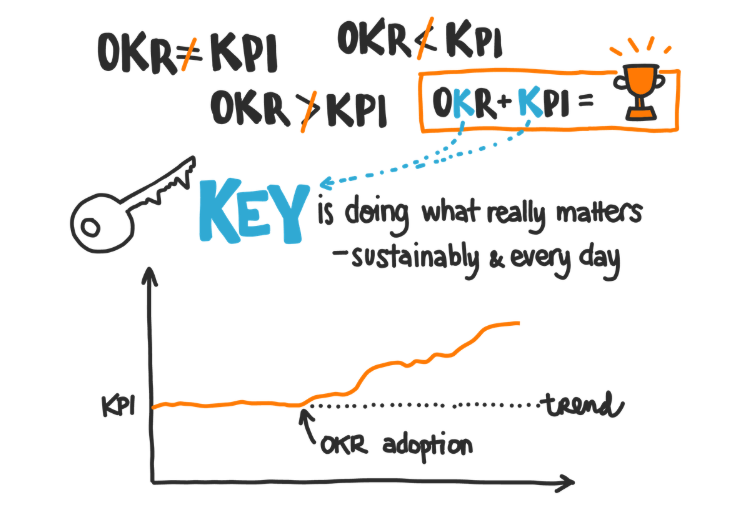 OKR ≠ KPI
OKR ≮ KPI
OKR ≯ KPI
OKR + KPI =
KEY is doing what really matters
- sustainably & every day
KPI
trend
OKR adoption